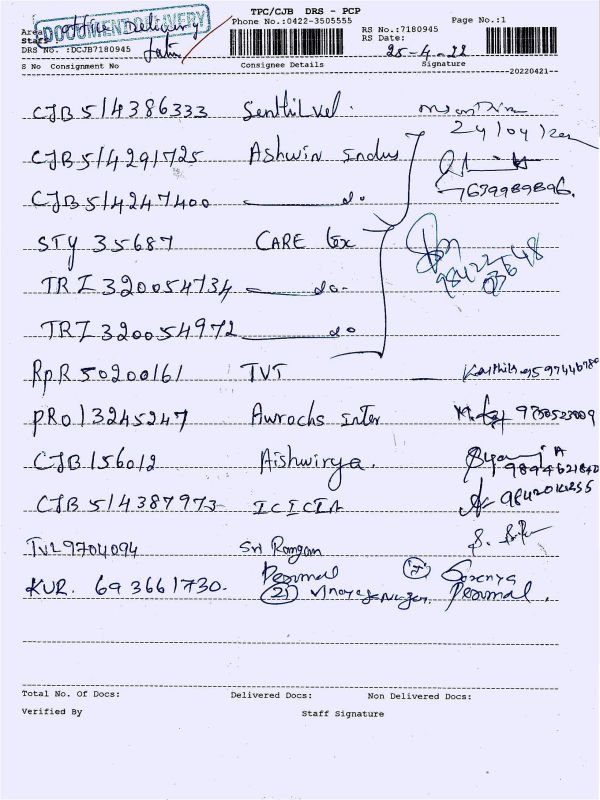 TPC/CJB DRS - PCP
Phone No.:0422-3505555
Page No.:1
Area
Office Delivery
DOCUMENT DELIVERY
RS No.:7180945
Staff
RS Date:
25-4-22
DRS No. :DCJB7180945
S No Consignment No Consignee Details Signature
--20220421--
CJB 514386333 Senthilvel.
CJB 514291725 Ashwin Indus
7639989896.
CJB 514247400 do-
STY 35687 CARE tex
98422 03648
TRZ 320054734 do-
TRZ 320054972 do
RPR 50200161 TVT Karthik 9597446780
PRO 13245247 Aurochs inter 9750523009
CJB 156012 Aishwirya.
9894621840
CJB 514387973 ICICIA
TVL 9704094 Sri Rangam
KUR. 693661730. Perumal
(21) Vinayak Nagar. Perumal.
Total No. Of Docs: Delivered Docs: Non Delivered Docs:
Verified By Staff Signature